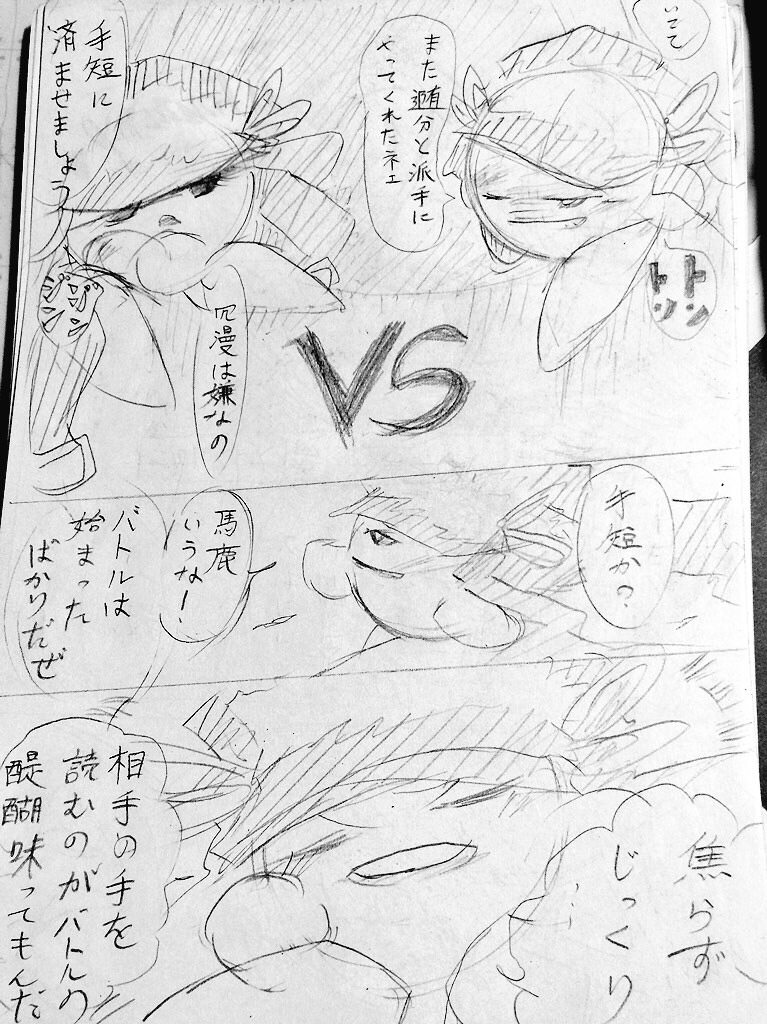 いてて
また迶分と派手に
やってくれたネェ
トン
トン
VS
手短に
済ませましょう
冗漫は嫌なの
ジン
ジン
手短か？
馬鹿
いうな！
バトルは
始まった
ばかりだぜ
焦らず
じっくり
相手の手を
読むのがバトルの
醍醐味ってもんだ